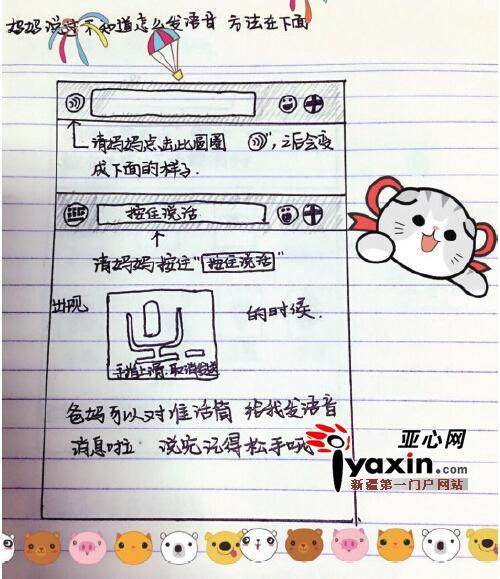 妈妈说过不知道怎么发语音 方法在下面
请妈妈点击此圆圈 ，之后会变
成下面的样子.
按住说话
请妈妈按住“按住说话”
出现
的时候.
手指上滑.取消发送
爸妈可以对准话筒 给我发语音
消息啦 说完记得松手哦
亚心网
iyaxin.com
新疆第一门户网站